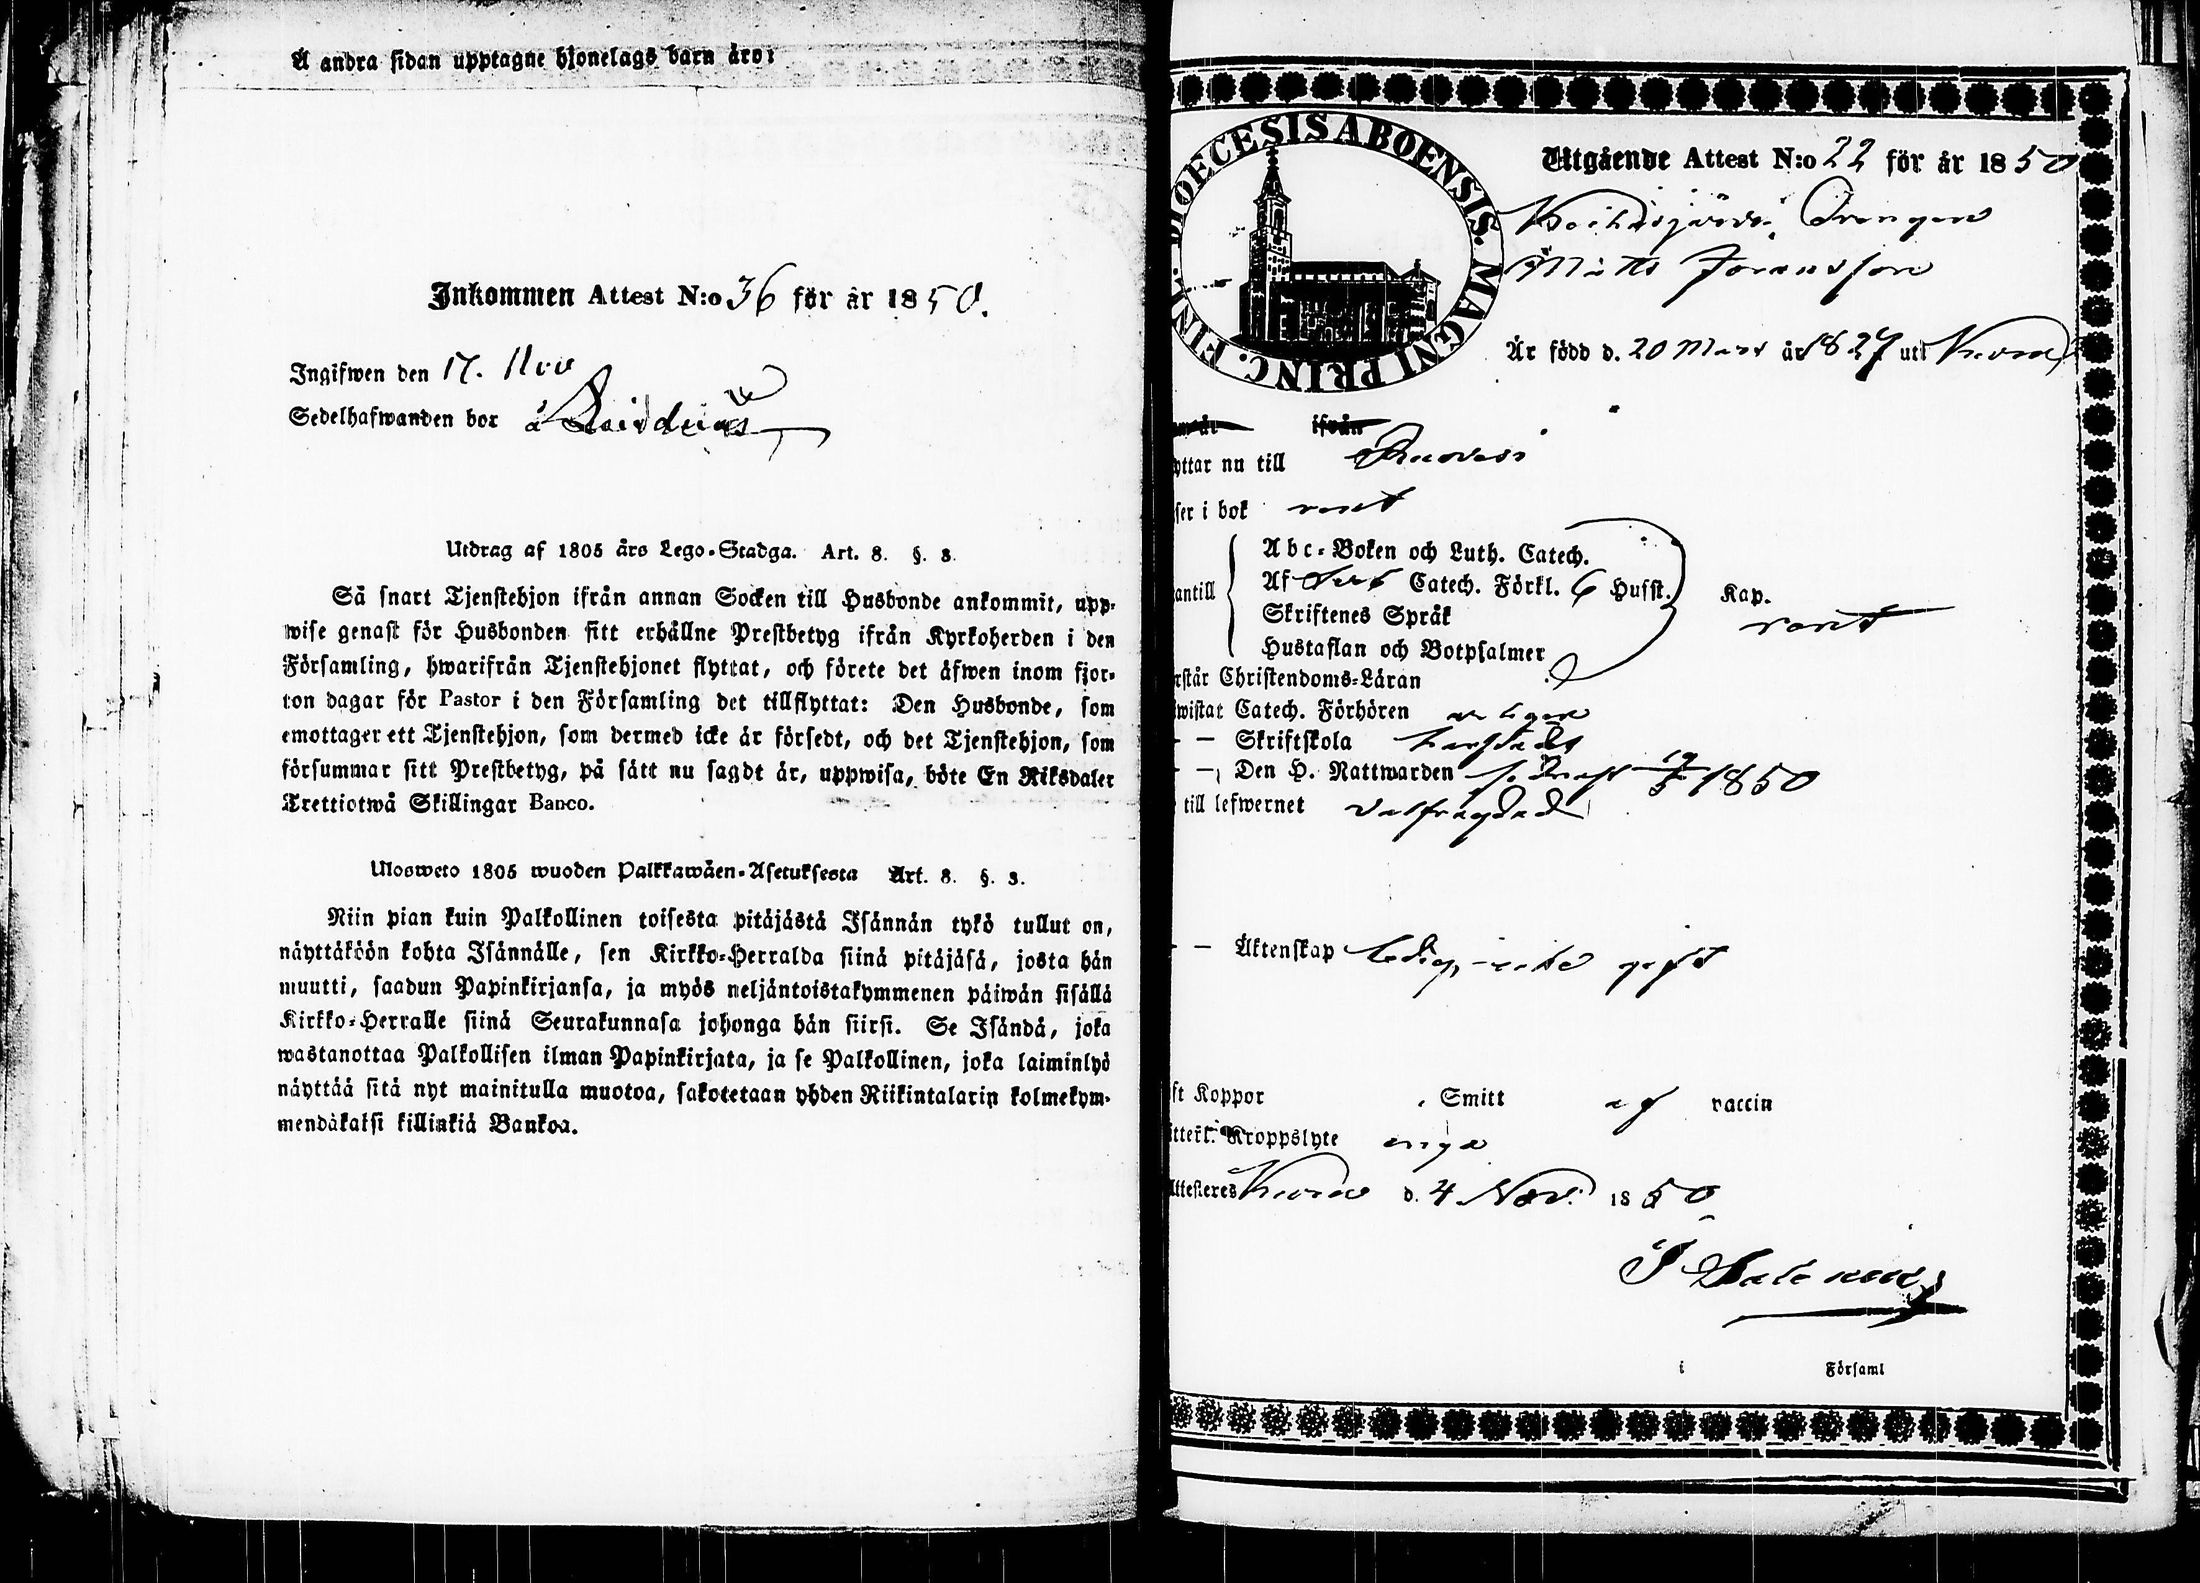 Å andra sidan upptagne hjonelags barn äro:
Inkommen Attest N:o 36 för år 1850.
Ingifwen den 17. Nov
Sedelhafwanden bor å
Utdrag af 1805 års Lego-Stadga. Art. 8. §. 3.
Så snart Tjenstehjon ifrån annan Socken till Husbonde ankommit, upp-
wise genast för Husbonden sitt erhållne Prestbetyg ifrån Kyrkoherden i den
Församling, hwarifrån Tjenstehjonet flyttat, och förete det äfwen inom fjor-
ton dagar för Pastor i den Församling det tillflyttat: Den Husbonde, som
emottager ett Tjenstehjon, som dermed icke är försedt, och det Tjenstehjon, som
försummar sitt Prestbetyg, på sätt nu sagdt är, uppwisa, böte En Riksdaler
Trettiotwå Skillingar Banco.
Ulosweto 1805 wuoden Palkkawäen-Asetuksesta Art. 8. §. 3.
Niin pian kuin Palkollinen toisesta pitäjästä Isännän tykö tullut on,
näyttäköön kohta Isännälle, sen Kirkko-Herralda siinä pitäjäsä, josta hän
muutti, saadun Papinkirjansa, ja myös neljäntoistakymmenen päiwän sisällä
Kirkko-Herralle siinä Seurakunnasa johonga hän siirsi. Se Isändä, joka
wastanottaa Palkollisen ilman Papinkirjata, ja se Palkollinen, joka laiminlyö
näyttää sitä nyt mainitulla muotoa, sakotetaan yhden Riikintalarin kolmekym-
mendäkaksi killinkiä Bankoa.
DIOECESIS ABOENSIS. MAGNI PRINC. FINL.
Utgående Attest N:o 22 för år 1850
Drengen
Matts Joransson
Är född d. 20 Mars år 1827 uti Kuorvesi
ifrån
yttar nu till Ruovesi
ser i bok rent
antill
Abc-Boken och Luth. Catech.
Af Catech. Förkl. 6 Husst. Kap.
Skriftenes Språk rent
Hustaflan och Botpsalmer
rstår Christendoms-Läran
iwistat Catech. Förhören
- - Skriftskola
- -, Den H. Nattwarden 1850
till lefwernet välfrägdad
- - Äktenskap ledig - icke gift
ft Koppor . Smitt af vaccin
tterl. Kroppslyte inga
Attesteres d. 4 Nov. 1850
i Församl